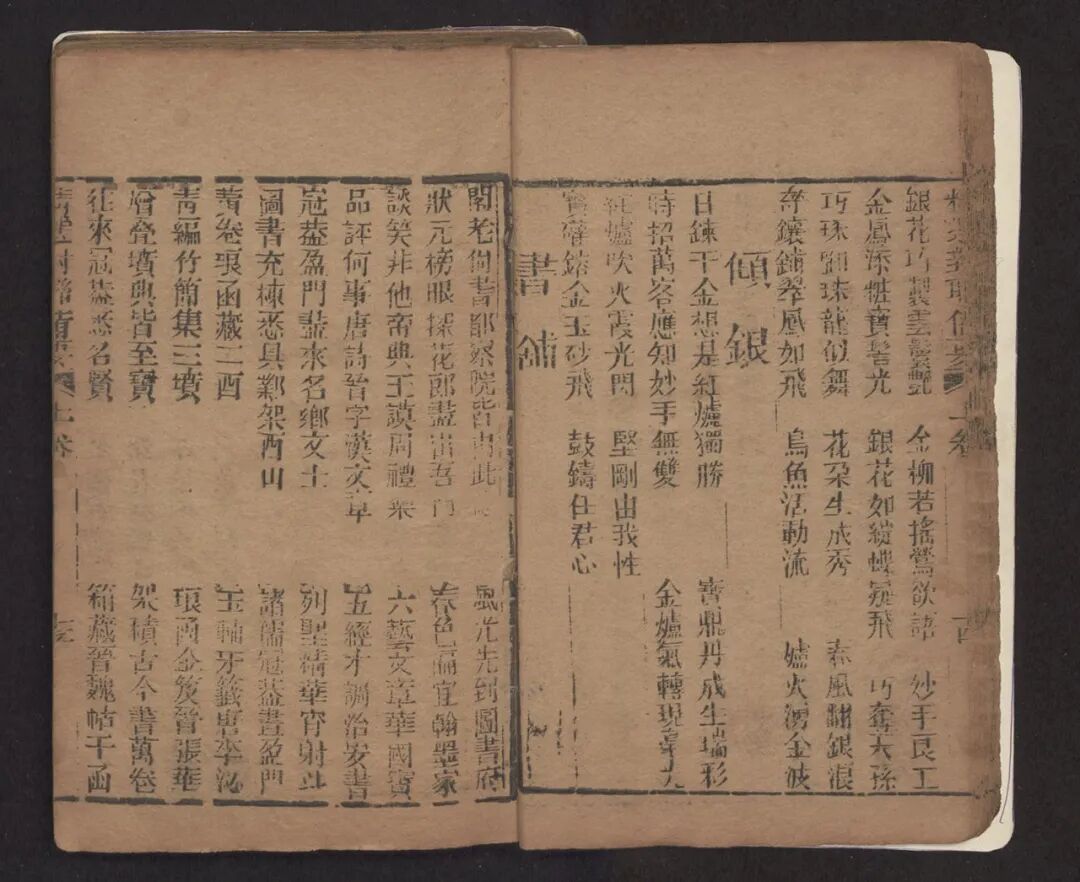 上卷 十四
銀花巧製雲鬟艷 金柳若搖鶯欲語 妙手良工
金鳳添粧寶髻光 銀花如綻蝶疑飛 巧奪天孫
巧珠珠龍似舞 花朶生成秀 春風翻銀浪
鑲翠風如飛 鳥魚活動流 爐火湧金波
傾銀
日鍊千金想是紅爐獨勝 寶鼎丹成生瑞彩
時招萬客應知妙手無雙 金爐氣轉現
爐吹火霞光閃 堅剛由我性
金玉砂飛 鼓鑄任君心
書鋪
閣老尚書都察院皆由此 風光先到圖書府
狀元榜眼探花郎盡出吾門 春色偏宜翰墨家
談笑非他帝典王謨周禮樂 六藝文章華國寶
品評何事唐詩晉字漢文章 五經才調治安書
冠蓋盈門盡來名鄉文士 列聖精華宵射斗
圖書充棟悉具鄴架西山 諸儒冠蓋晝盈門
黃卷琅函藏二酉 玉軸牙籤唐李泌
靑編竹簡集三墳 琅函金笈晉張華
層疊墳典皆至寶 架積古今書萬卷
往來冠蓋悉名賢 箱藏晉魏帖千函
上卷